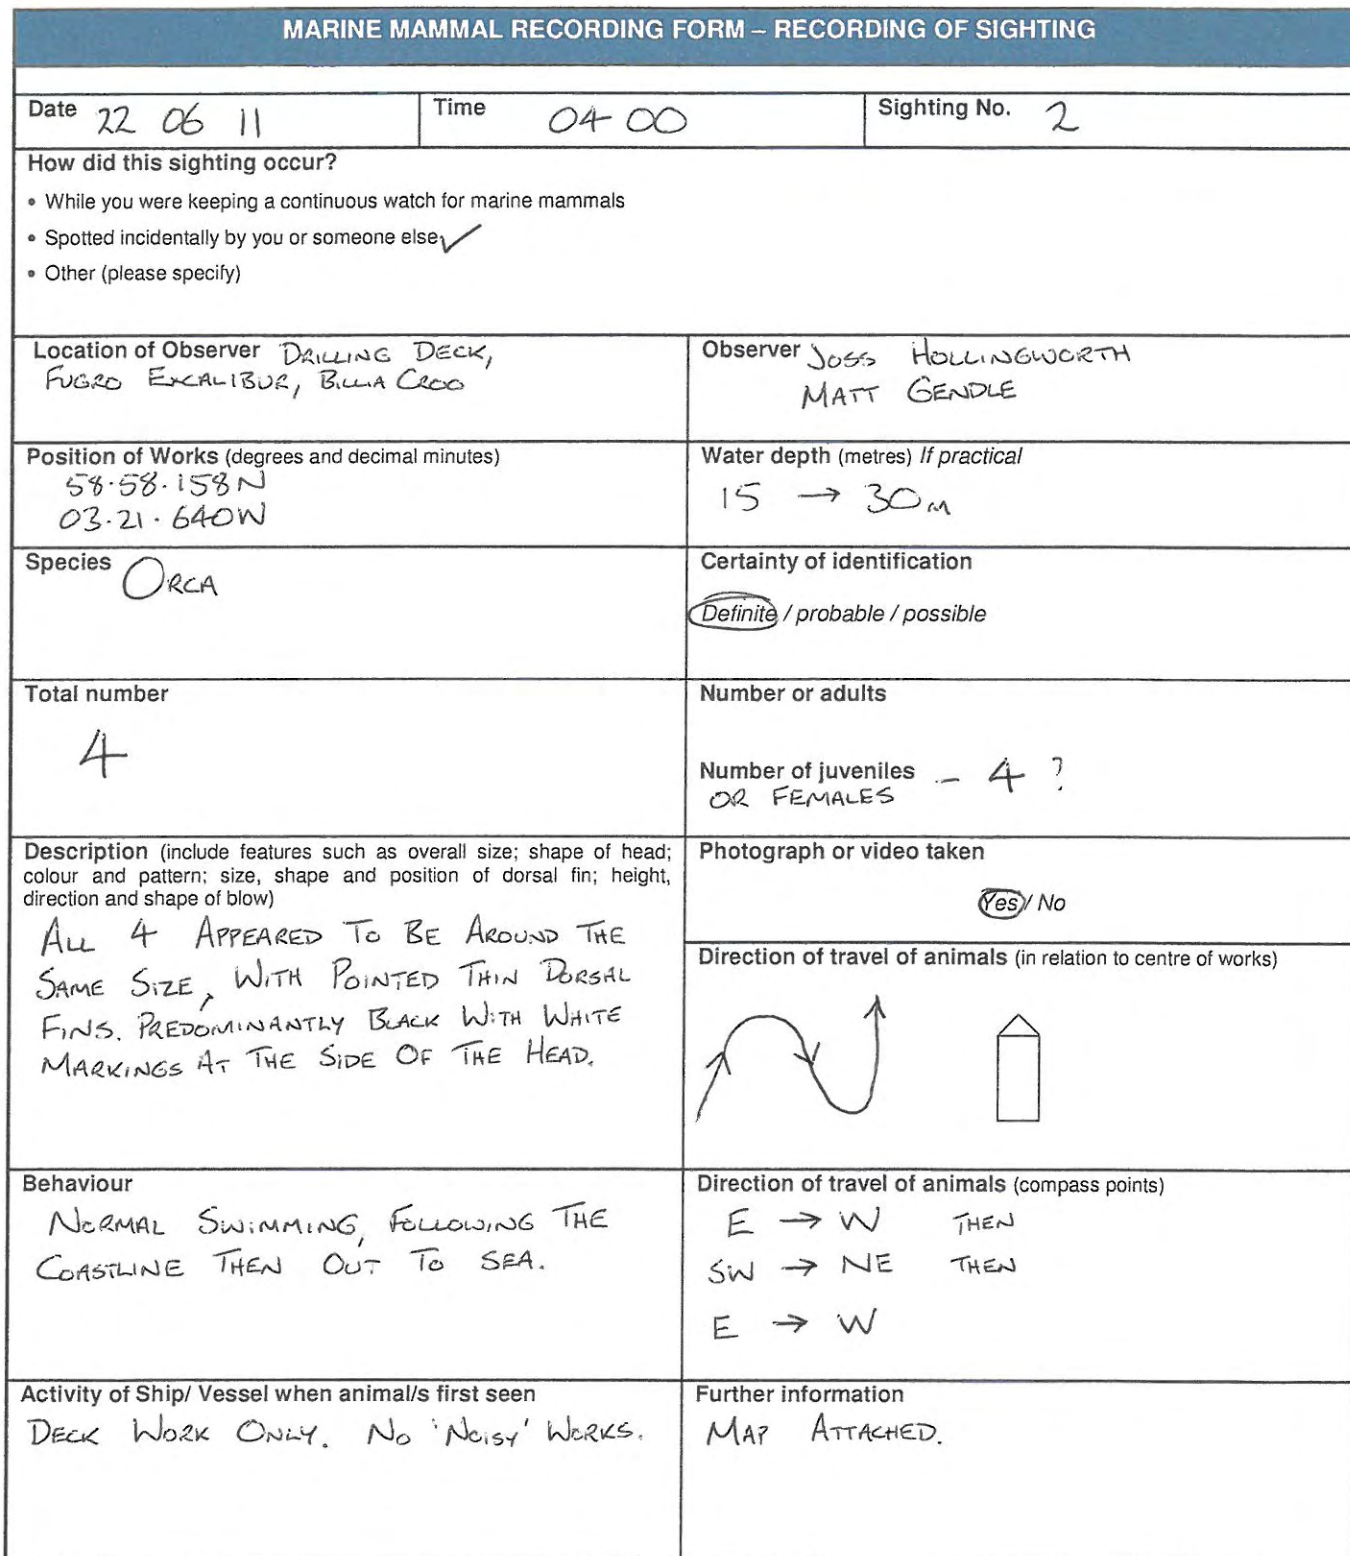 MARINE MAMMAL RECORDING FORM – RECORDING OF SIGHTING
Date 22 06 11
Time 04 00
Sighting No. 2
How did this sighting occur?
• While you were keeping a continuous watch for marine mammals
• Spotted incidentally by you or someone else ✓
• Other (please specify)
Location of Observer DRILLING DECK,
FUGRO EXCALIBUR, BILLIA CROO
Observer JOSS HOLLINGWORTH
MATT GENDLE
Position of Works (degrees and decimal minutes)
58.58.158N
03.21.640W
Water depth (metres) If practical
15 → 30m
Species ORCA
Certainty of identification
Definite / probable / possible
Total number
4
Number or adults
Number of juveniles – 4 ?
OR FEMALES
Description (include features such as overall size; shape of head;
colour and pattern; size, shape and position of dorsal fin; height,
direction and shape of blow)
ALL 4 APPEARED TO BE AROUND THE
SAME SIZE, WITH POINTED THIN DORSAL
FINS. PREDOMINANTLY BLACK WITH WHITE
MARKINGS AT THE SIDE OF THE HEAD.
Photograph or video taken
Yes / No
Direction of travel of animals (in relation to centre of works)
Behaviour
NORMAL SWIMMING, FOLLOWING THE
COASTLINE THEN OUT TO SEA.
Direction of travel of animals (compass points)
E → W THEN
SW → NE THEN
E → W
Activity of Ship/ Vessel when animal/s first seen
DECK WORK ONLY. NO 'NOISY' WORKS.
Further information
MAP ATTACHED.